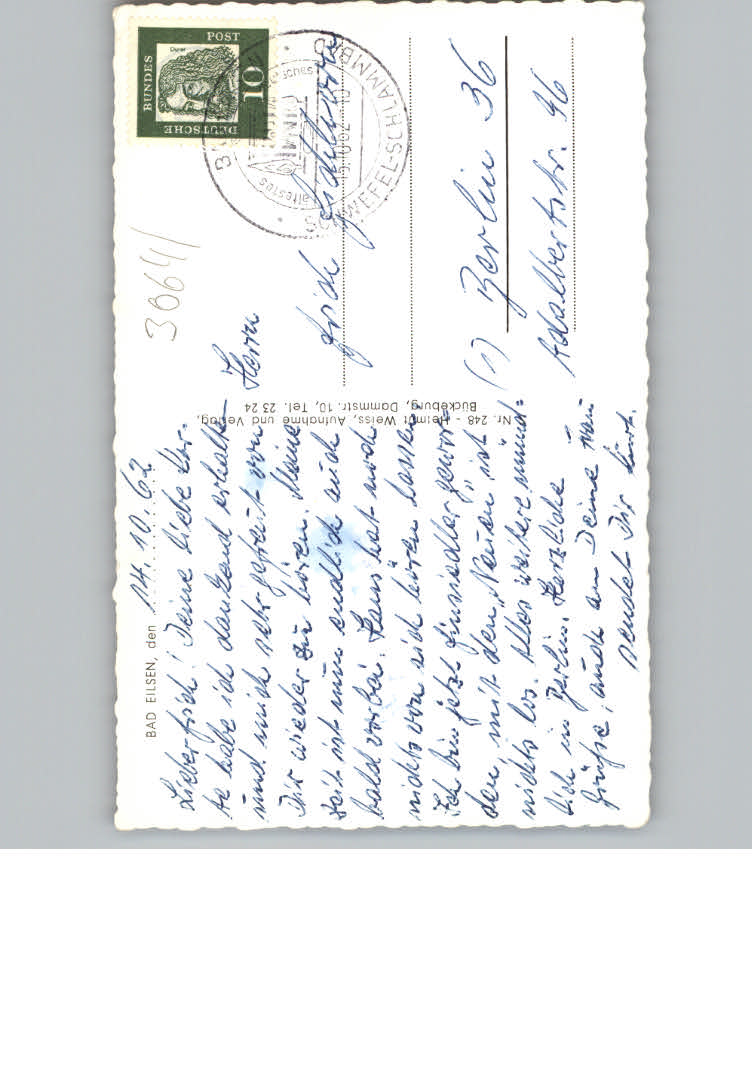 BAD EILSEN, den 14. 10. 62
Lieber Erich! Deine liebe Kar-
te habe ich dankend erhalten
und mich sehr gefreut von
Dir wieder zu hören. Meine
Zeit ist nun endlich auch
bald vorbei. Hans hat noch
nichts von sich hören lassen.
Ich bin jetzt Einsiedler gewor-
den, mit den "Neuen" ist
nichts los. Alles weitere münd-
lich in Berlin. Herzliche
Grüße, auch an Deine Frau
sendet Dir Kurt.
Nr. 248 - Helmut Weiss, Aufnahme und Verlag,
Bückeburg, Dammstr. 10, Tel. 23 24
Herrn
Erich
(1) Berlin 36
Adalbertstr. 96
30641
DEUTSCHE
BUNDES
POST
10
Dürer
SCHWEFEL-SCHLAMMB
ältestes